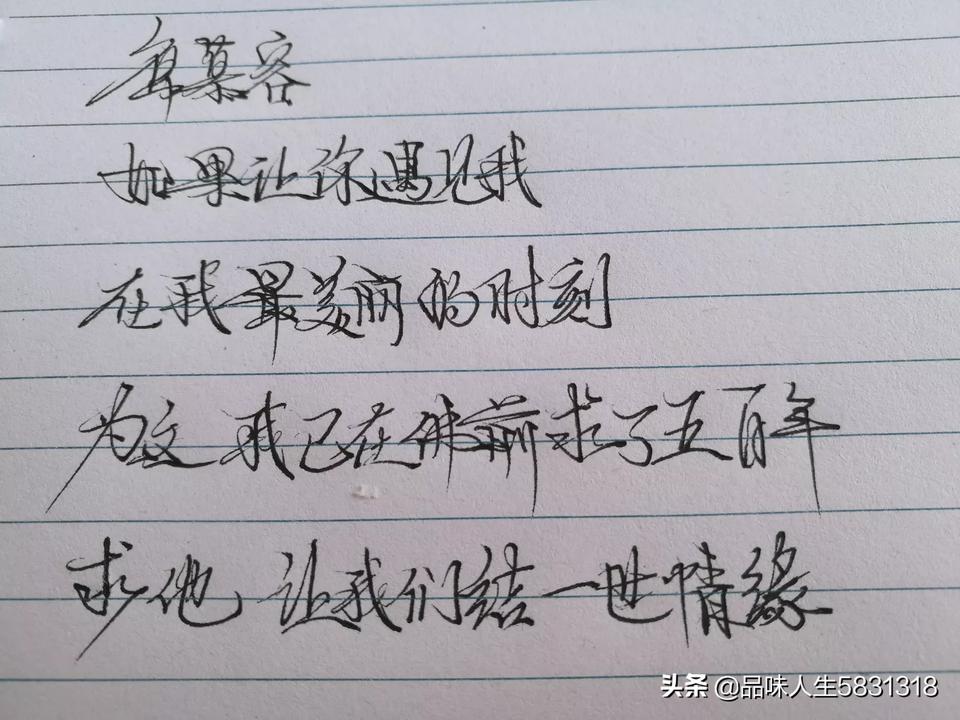 席慕容
如果让你遇见我
在我最美丽的时刻
为这 我已在佛前求了五百年
求他 让我们结一世情缘
头条 @品味人生5831318